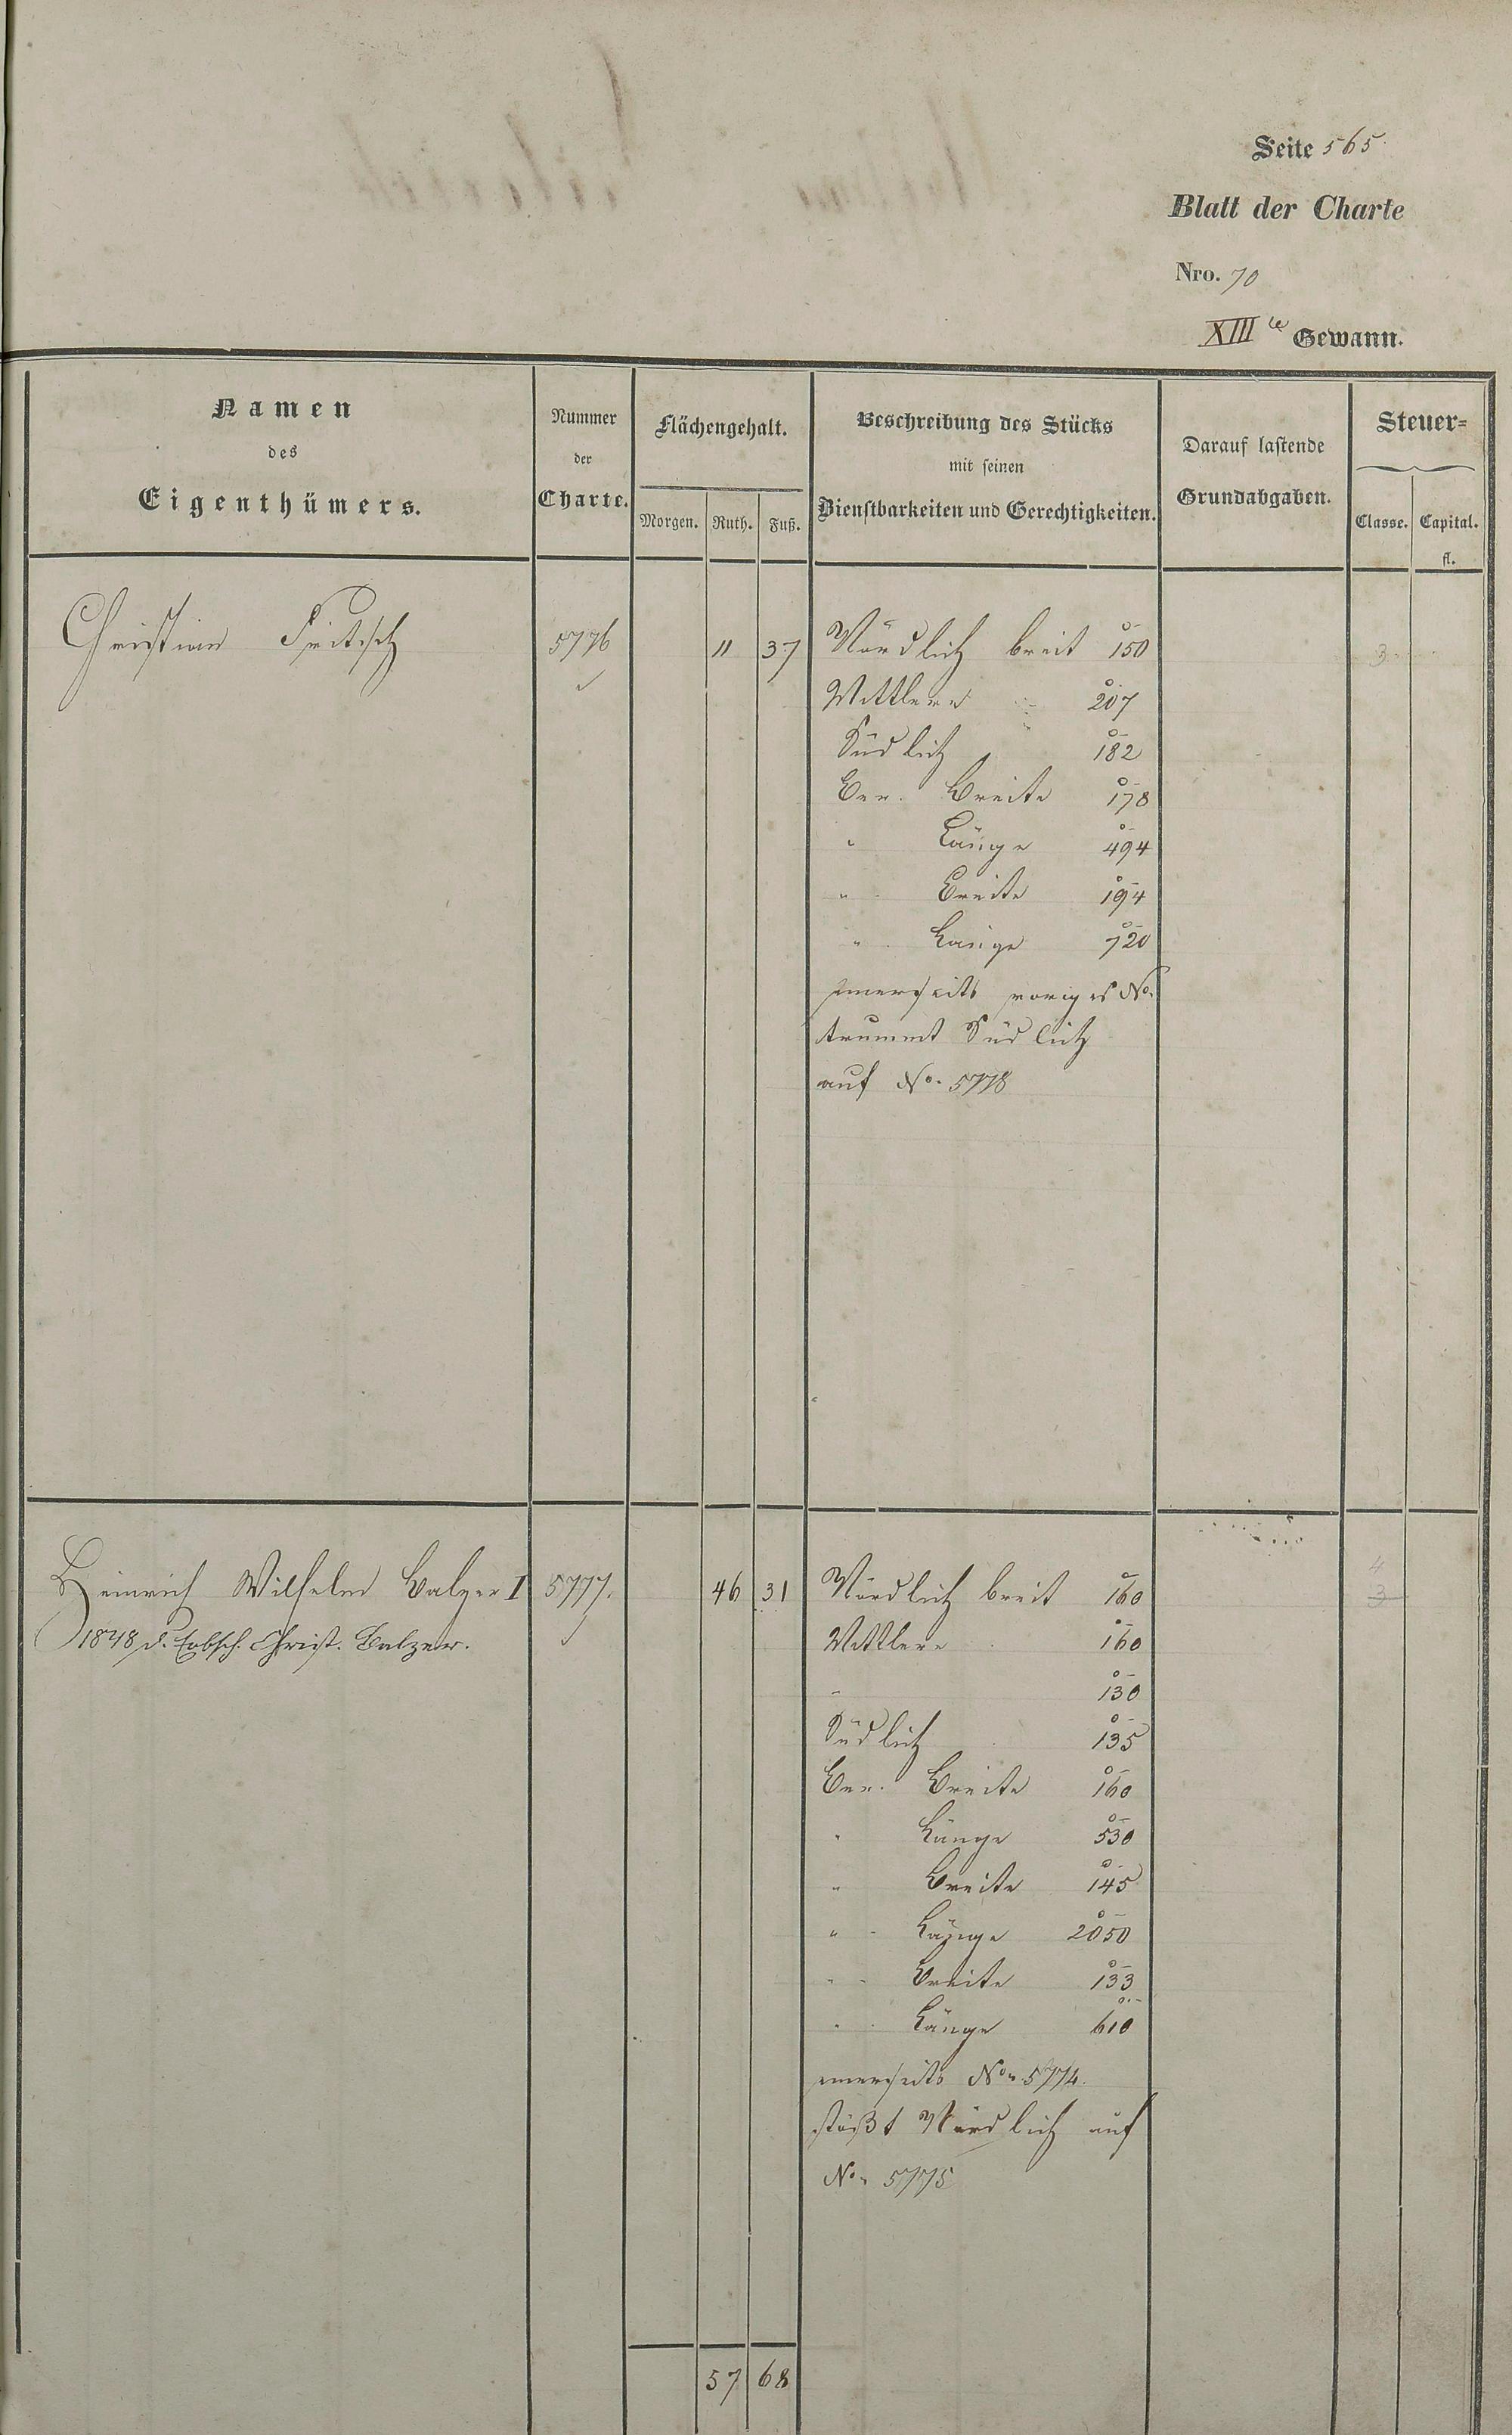 Seite 565
Blatt der Charte
Nro. 70
XIIIte Gewann.
Namen
des
Eigenthümers.
Nummer
der
Charte.
Flächengehalt.
Morgen. Ruth. Fuß.
Beschreibung des Stücks
mit seinen
Dienstbarkeiten und Gerechtigkeiten.
Darauf lastende
Grundabgaben.
Steuer=
Classe. Capital.
fl.
Christian Fritsch 5776 11 37 Nördlich breit 150 3
Mittlere 207
Südlich 182
Ber. Breite 178
" Länge 494
" Breite 194
" Länge 720
einerseits voriges No.
trummt Südlich
auf No. 5778
4
Heinrich Wilhelm Balzer I 5777. 46 31 Nördlich breit 160 3
1848 d. Erbsch. Christ. Balzer. Mittlere 160
" 130
Südlich 135
Ber. Breite 160
" Länge 530
" Breite 145
" Länge 2050
" Breite 133
" Länge 610
einerseits No. 5774.
stößt Nördlich auf
No. 5775
57 68